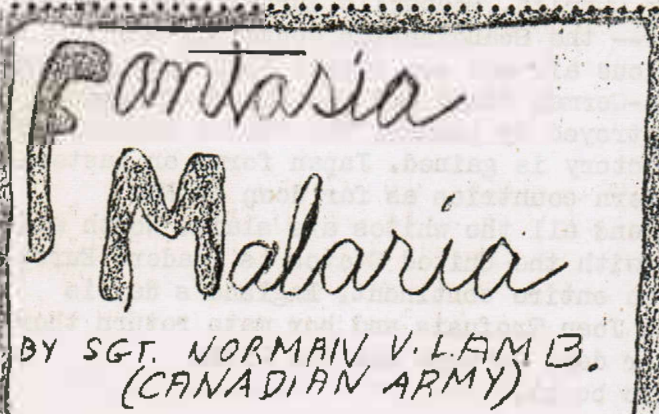 Fantasia
Malaria
BY SGT. NORMAN V. LAMB.
(CANADIAN ARMY)